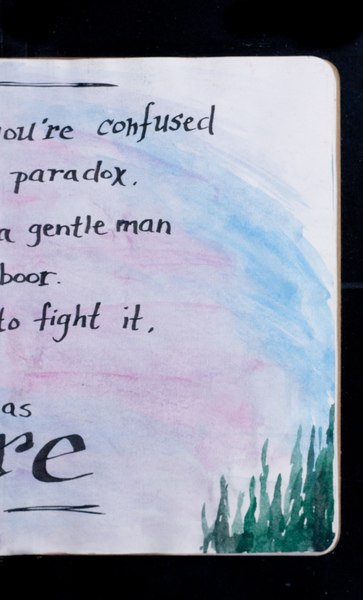 you're confused
paradox.
a gentle man
boor.
to fight it,
as
re